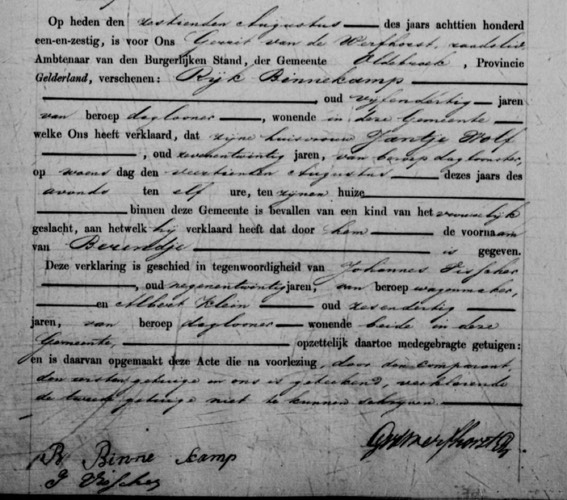 Op heden den zestienden Augustus des jaars achttien honderd
een-en-zestig, is voor Ons Gerrit van de Werfhorst, raadslid,
Ambtenaar van den Burgerlijken Stand, der Gemeente Oldebroek, Provincie
Gelderland, verschenen: Rijk Binnekamp
oud vijfendertig jaren
van beroep daglooner, wonende in deze Gemeente
welke Ons heeft verklaard, dat zijne huisvrouw Jantje Wolf
, oud zevenentwintig jaren, van beroep dagloonster,
op woens dag den veertienden Augustus dezes jaars des
avonds ten elf ure, ten zijnen huize
binnen deze Gemeente is bevallen van een kind van het vrouwelijk
geslacht, aan hetwelk hij verklaard heeft dat door hem de voornaam
van Berendje is gegeven.
Deze verklaring is geschied in tegenwoordigheid van Johannes Visscher
, oud negenentwintig jaren, van beroep wagenmaker,
en Albert Klein oud zesendertig
jaren, van beroep daglooner wonende beide in deze
Gemeente, opzettelijk daartoe medegebragte getuigen:
en is daarvan opgemaakt deze Acte die na voorlezing, door den comparant,
den eersten getuige en ons is geteekend, verklarende
de tweede getuige niet te kunnen schrijven.
GvdWerfhorst
R Binne kamp
J Visscher